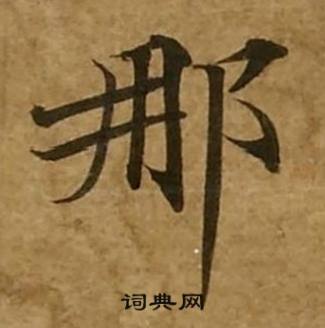 那
词典网